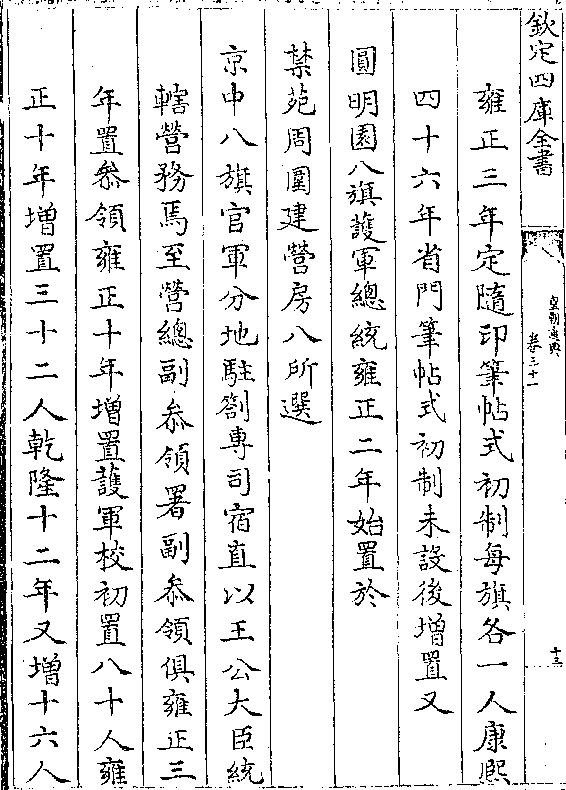 欽定四庫全書
皇朝通典
卷三十一
十三
雍正三年定隨印筆帖式初制每旗各一人康熙
四十六年省門筆帖式初制未設後增置又
圓明園八旗護軍總統雍正二年始置於
禁苑周圍建營房八所選
京中八旗官軍分地駐劄專司宿直以王公大臣統
轄營務焉至營總副叅領署副叅領俱雍正三
年置叅領雍正十年增置護軍校初置八十人雍
正十年增置三十二人乾隆十二年又增十六人